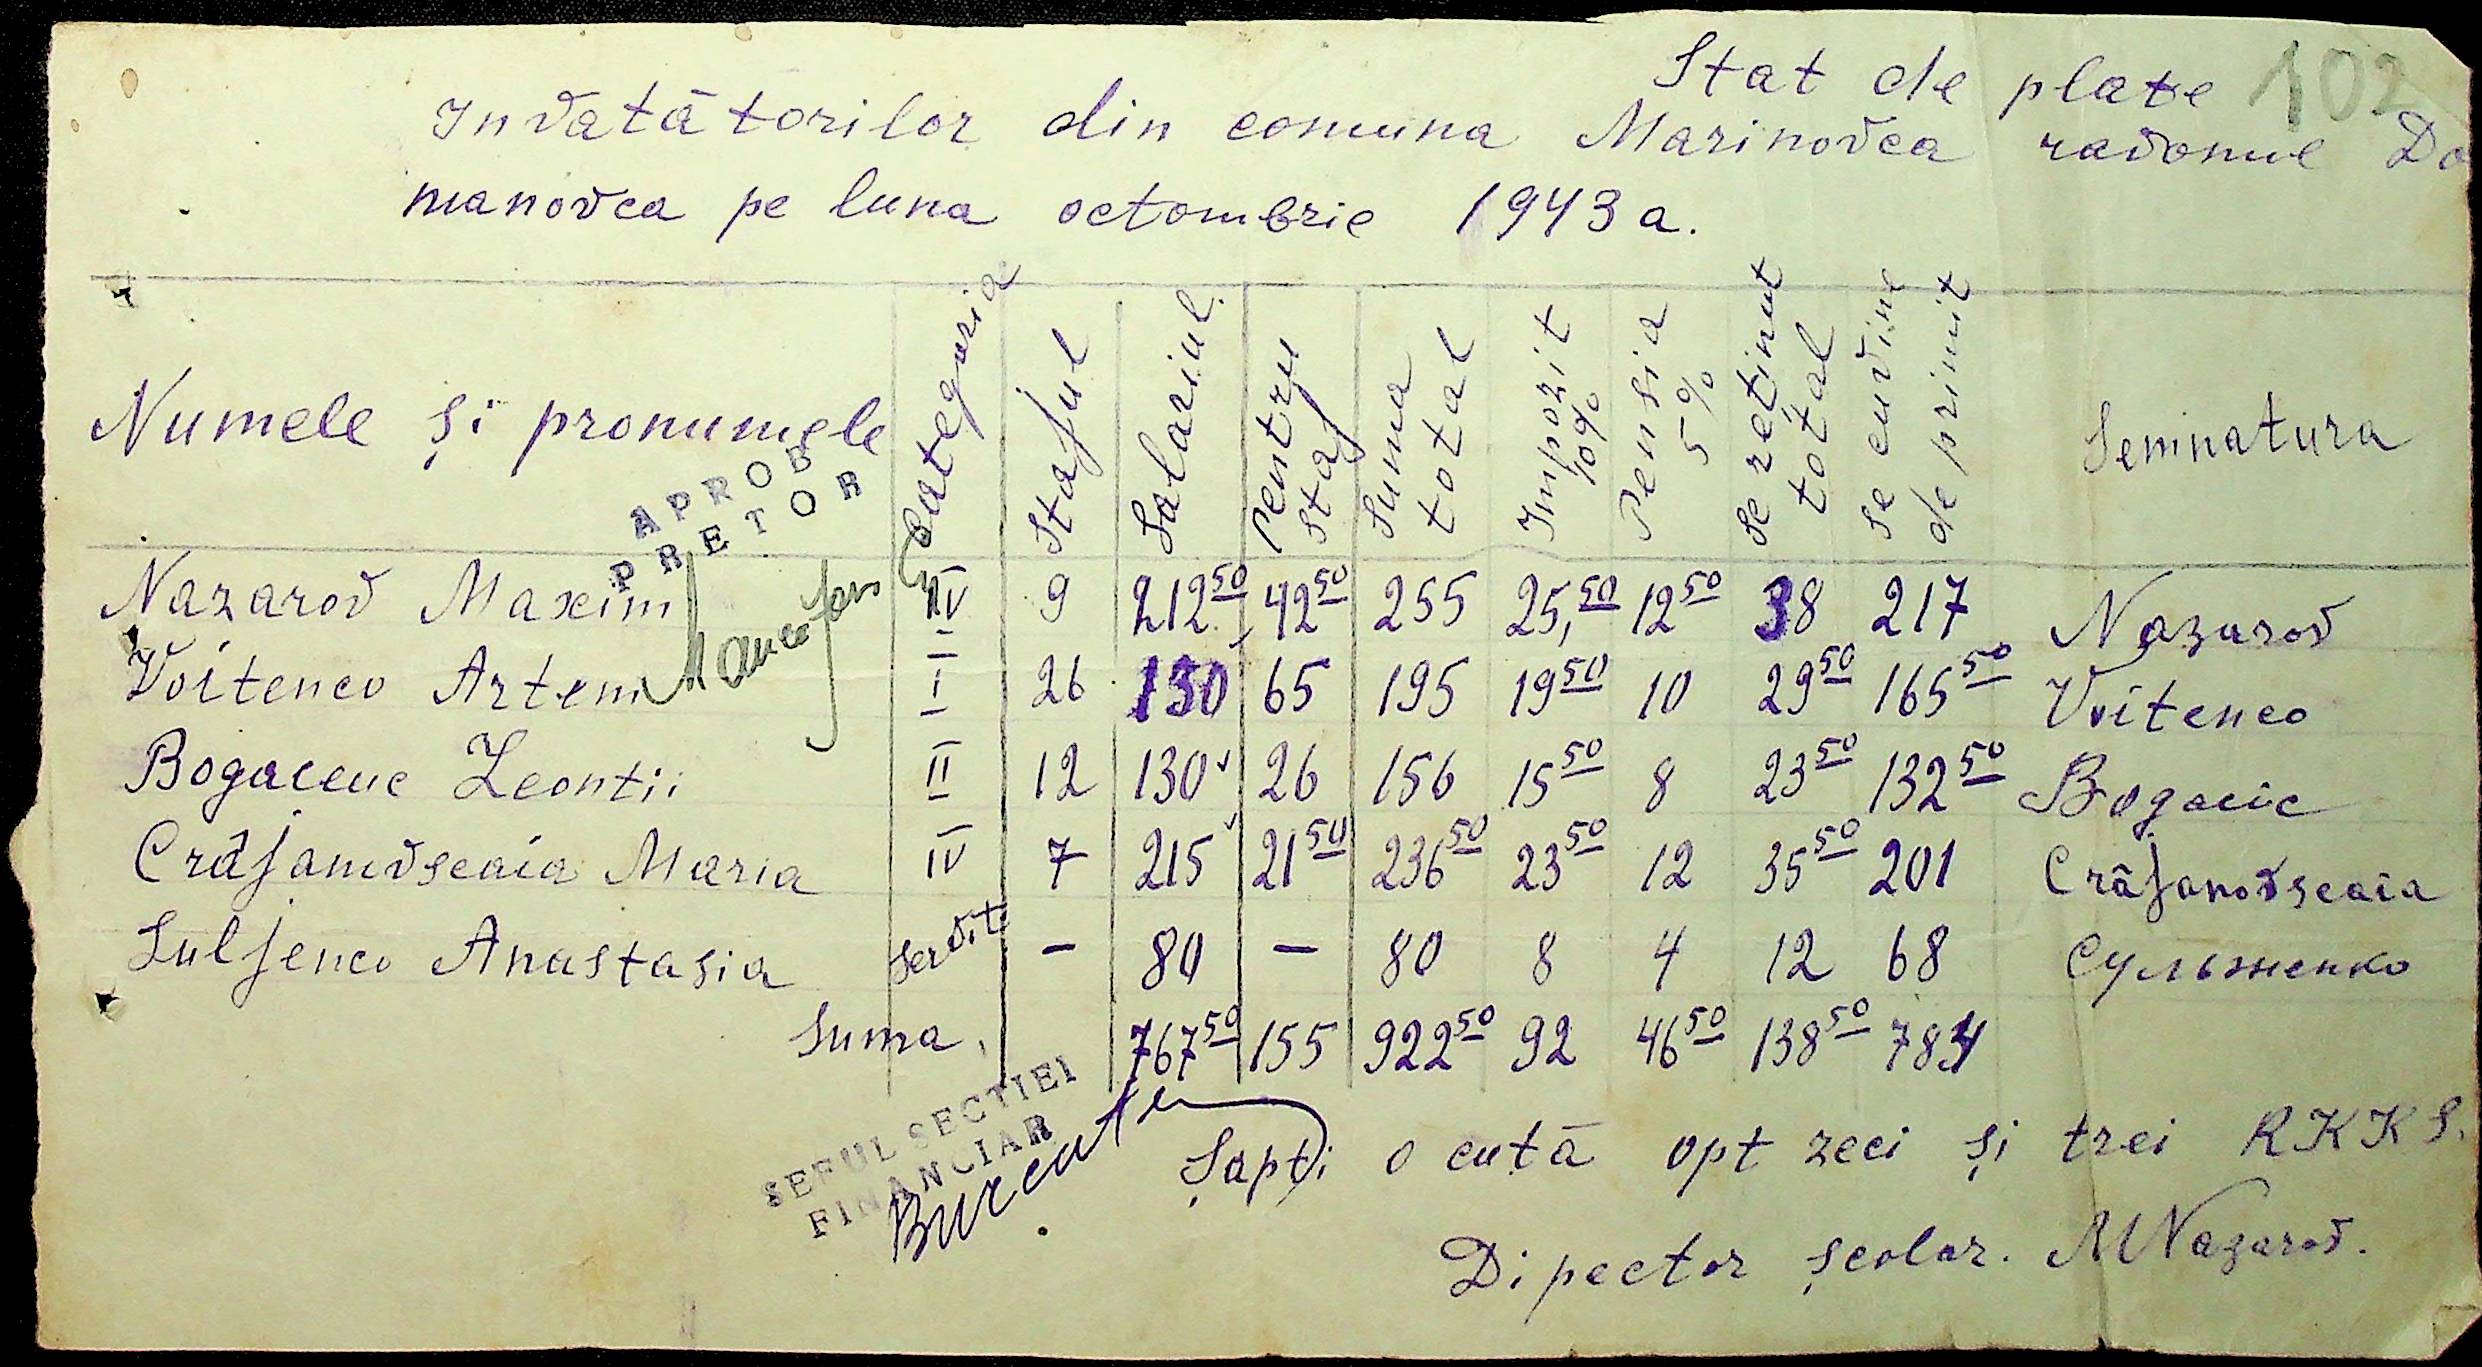 102
Stat de plate
Invatătorilor din comuna Marinovca raionul Do
manovca pe luna octombrie 1943 a.
Numele și pronumele Categoria Stajul Salariul. Pentru staj Suma total Impozit 10% Pensia 5% Se retinut total Se cuvine de primit Semnatura
APROB
PRETOR
Nazarov Maxim IV 9 212 50 42 50 255 25,50 12 50 38 217 Nazarov
Voitenco Artem I 26 130 65 195 19 50 10 29 50 165 50 Voitenco
Bogacenc Leontii II 12 130 26 156 15 50 8 23 50 132 50 Bogacic
Crâjanovscaia Maria IV 7 215 21 50 236 50 23 50 12 35 50 201 Crâjanovscaia
Suljenco Anastasia Servit. — 80 — 80 8 4 12 68 Сульженко
Suma 767 50 155 922 50 92 46 50 138 50 784
SEFUL SECTIEI
FINANCIAR
Șapti o cută opt zeci și trei RKKS.
Dipector școlar. MNazarov.